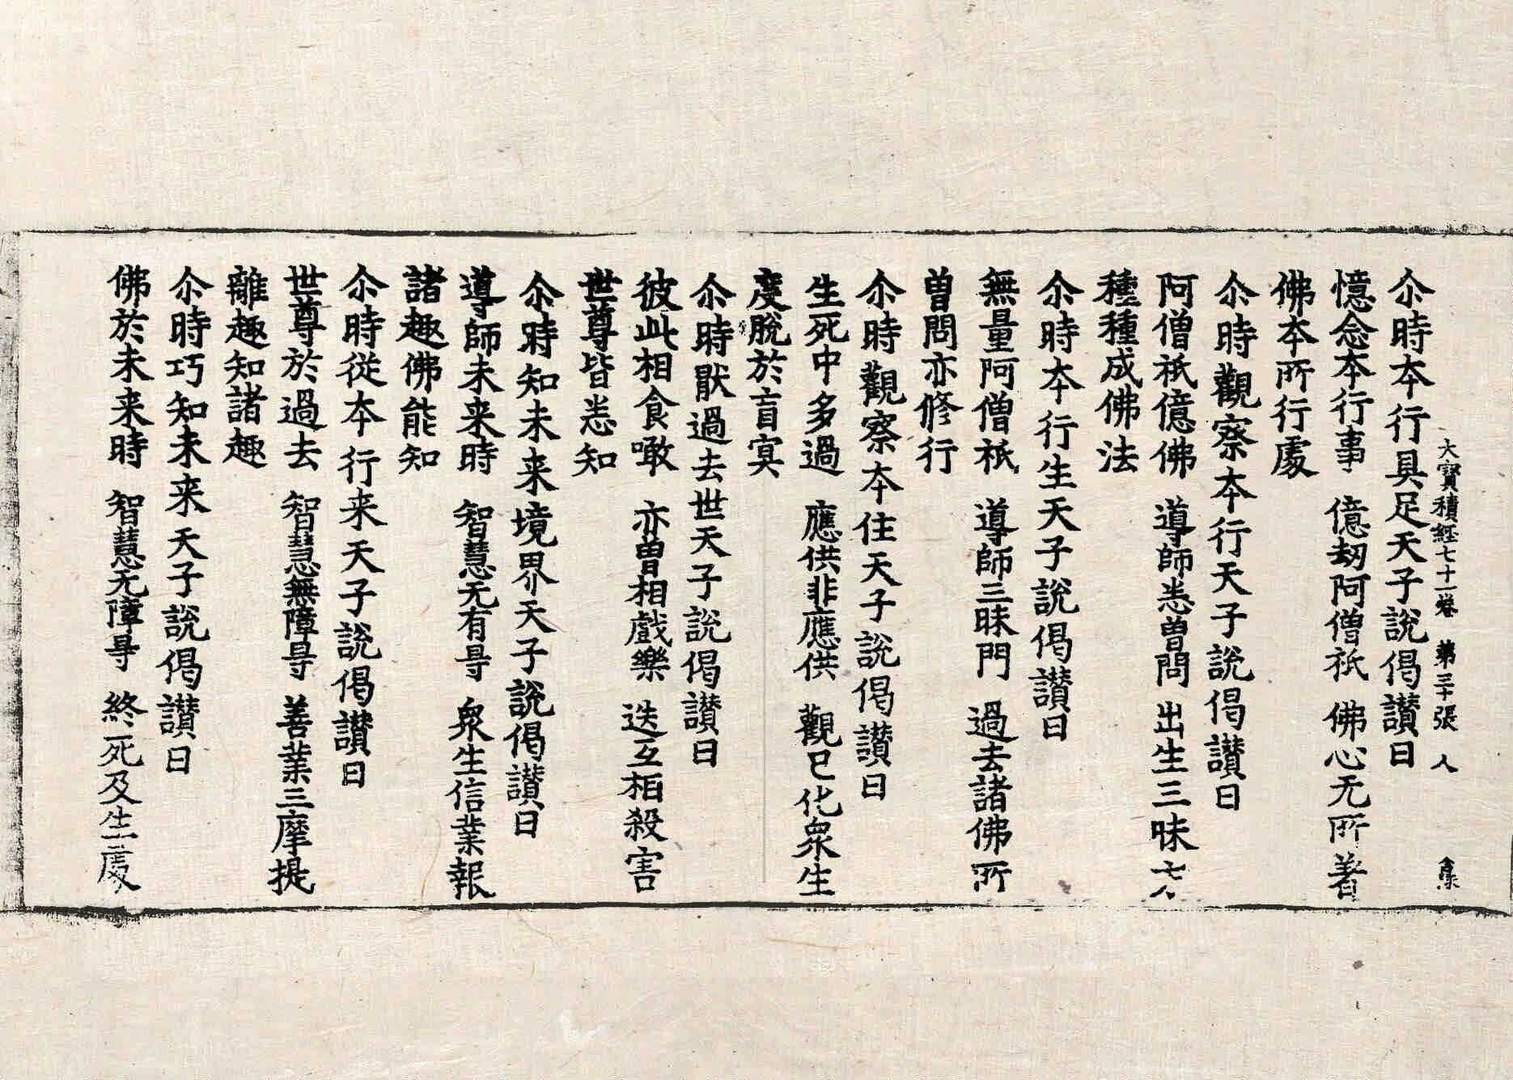 大寳積經七十一卷 第三十張 人
尒時本行具足天子說偈讃曰
憶念本行事 億劫阿僧祇 佛心无所著
佛本所行處
尒時觀察本行天子說偈讃曰
阿僧祇億佛 導師悉曽問 出生三昧
種種成佛法
尒時本行生天子說偈讃曰
無量阿僧祇 導師三昧門 過去諸佛所
曽問亦修行
尒時觀察本住天子說偈讃曰
生死中多過 應供非應供 觀已化衆生
度脫於盲冥
尒時猒過去世天子說偈讃曰
彼此相食噉 亦曽相戲樂 迭互相殺害
世尊皆悉知
尒時知未来境界天子說偈讃曰
導師未来時 智慧无有㝵 衆生信業報
諸趣佛能知
尒時從本行来天子說偈讃曰
世尊於過去 智慧無障㝵 善業三摩提
離趣知諸趣
尒時巧知未来天子說偈讃曰
佛於未来時 智慧无障㝵 終死及生處